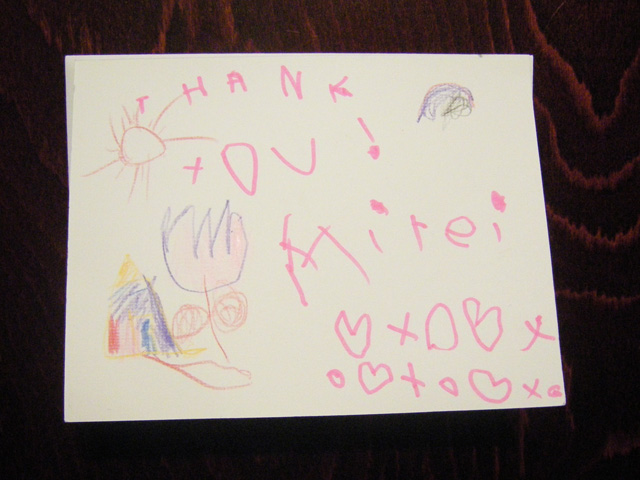 THANK
YOU!
Mirei
♡XO♡X
O♡XO♡XO